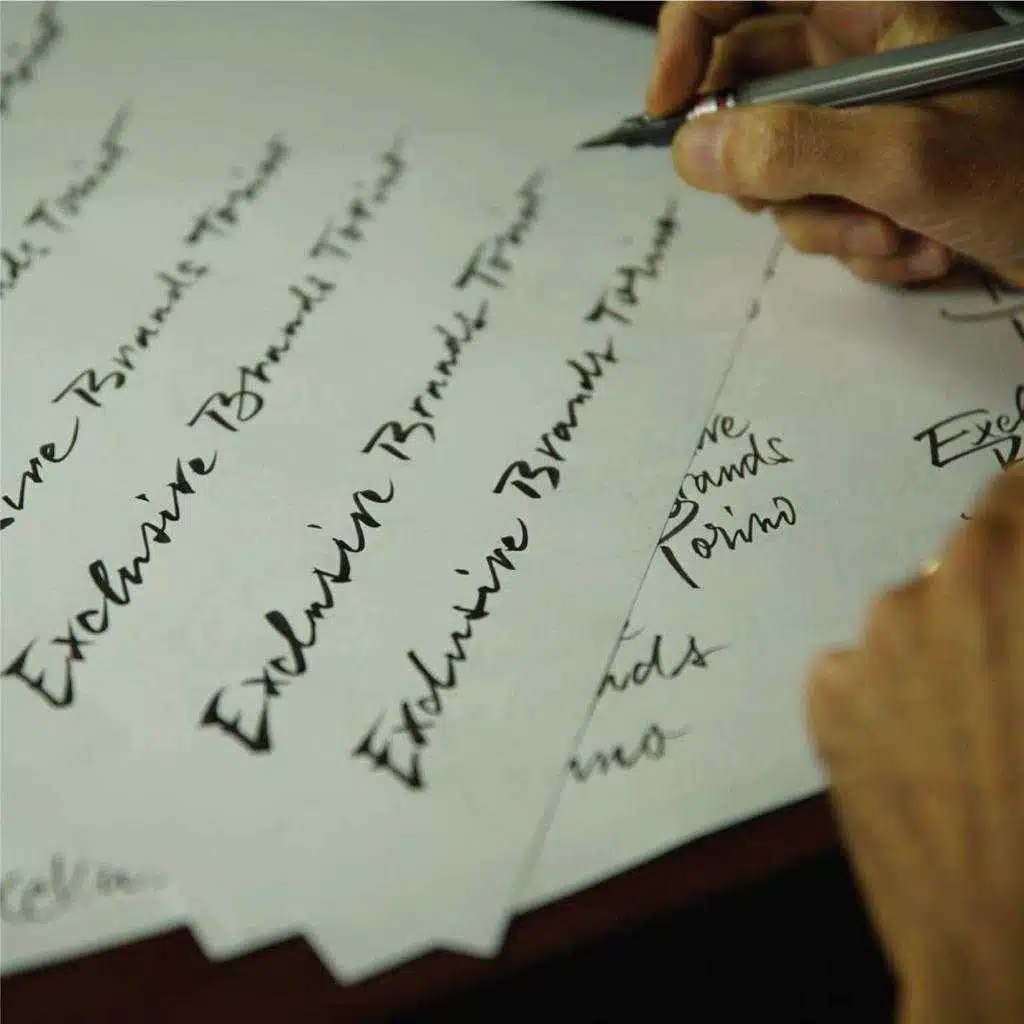 ds Torino
sive Brands Torino
Exclusive Brands Torino
Exclusive Brands Torino
Exclusive Brands Torino
ve
rands
Torino
nds
ino
Excl